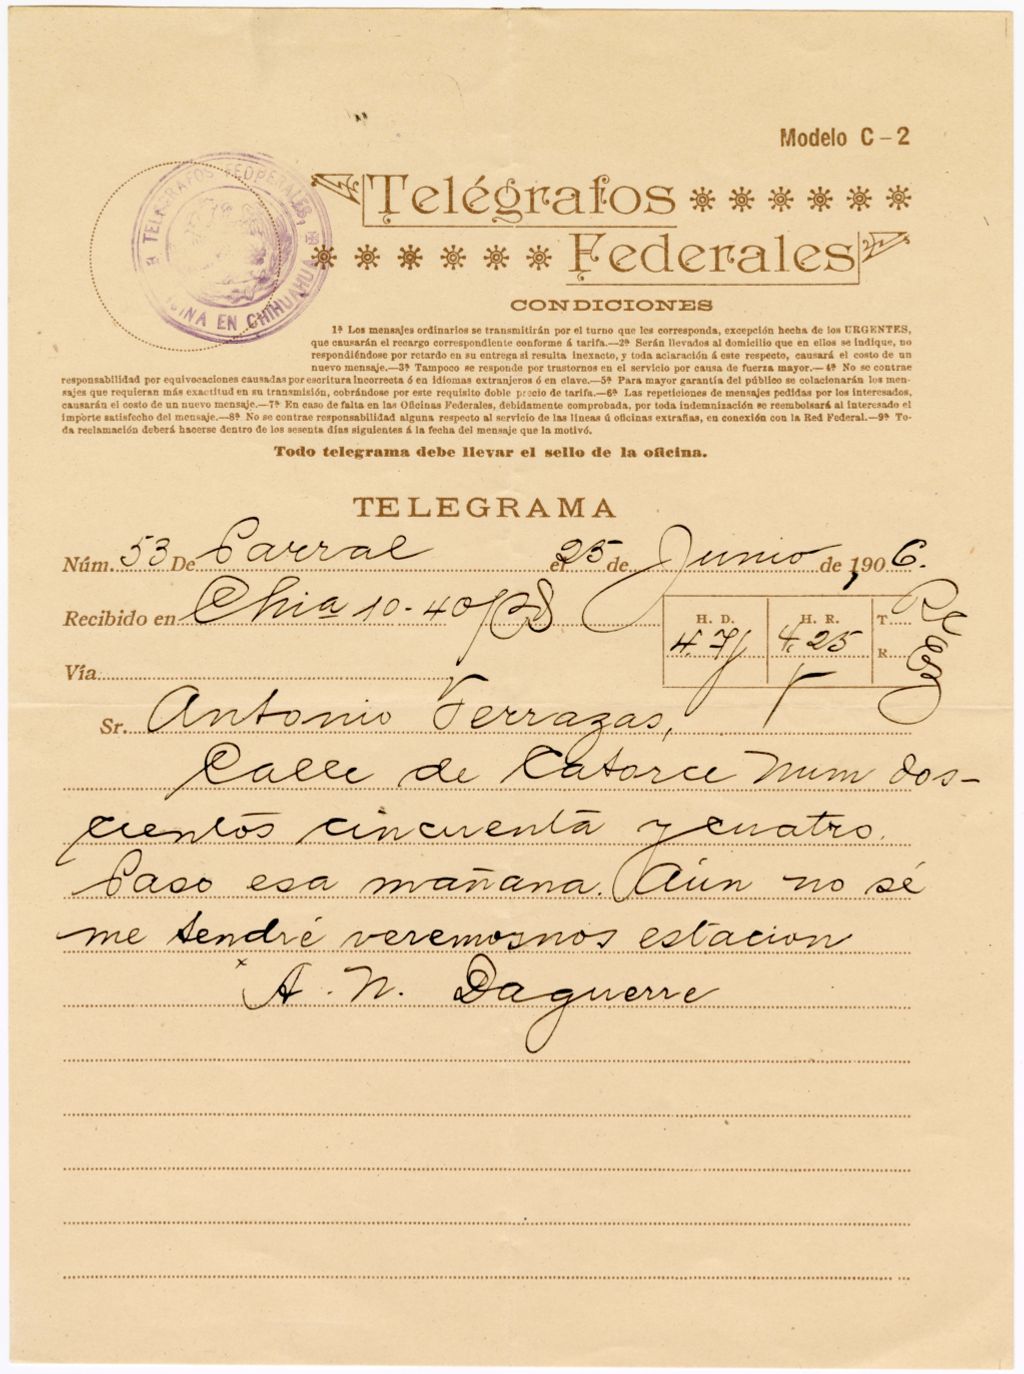 Modelo C-2
TELEGRAFOS FEDERALES,
OFICINA EN CHIHUAHUA
Telégrafos
Federales
CONDICIONES
1ª Los mensajes ordinarios se transmitirán por el turno que les corresponda, excepción hecha de los URGENTES,
que causarán el recargo correspondiente conforme á tarifa.—2ª Serán llevados al domicilio que en ellos se indique, no
respondiéndose por retardo en su entrega si resulta inexacto, y toda aclaración á este respecto, causará el costo de un
nuevo mensaje.—3ª Tampoco se responde por trastornos en el servicio por causa de fuerza mayor.—4ª No se contrae
responsabilidad por equivocaciones causadas por escritura incorrecta ó en idiomas extranjeros ó en clave.—5ª Para mayor garantía del público se colacionarán los men-
sajes que requieran más exactitud en su transmisión, cobrándose por este requisito doble precio de tarifa.—6ª Las repeticiones de mensajes pedidas por los interesados,
causarán el costo de un nuevo mensaje.—7ª En caso de falta en las Oficinas Federales, debidamente comprobada, por toda indemnización se reembolsará al interesado el
importe satisfecho del mensaje.—8ª No se contrae responsabilidad alguna respecto al servicio de las líneas ú oficinas extrañas, en conexión con la Red Federal.—9ª To-
da reclamación deberá hacerse dentro de los sesenta días siguientes á la fecha del mensaje que la motivó.
Todo telegrama debe llevar el sello de la oficina.
TELEGRAMA
Núm. 53 De Parral el 25 de Junio de 1906.
Recibido en Chia 10-40
H. D. H. R. T.
4.7 4.25 R
Vía
Sr. Antonio Terrazas,
Calle de Catorce Num dos-
cientos cincuenta y cuatro.
Paso esa mañana. Aún no sé
me tendré veremosnos estacion
A. N. Daguerre